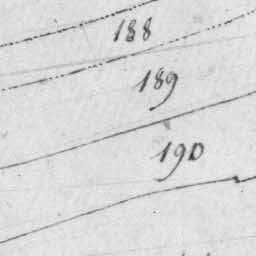 188
189
190